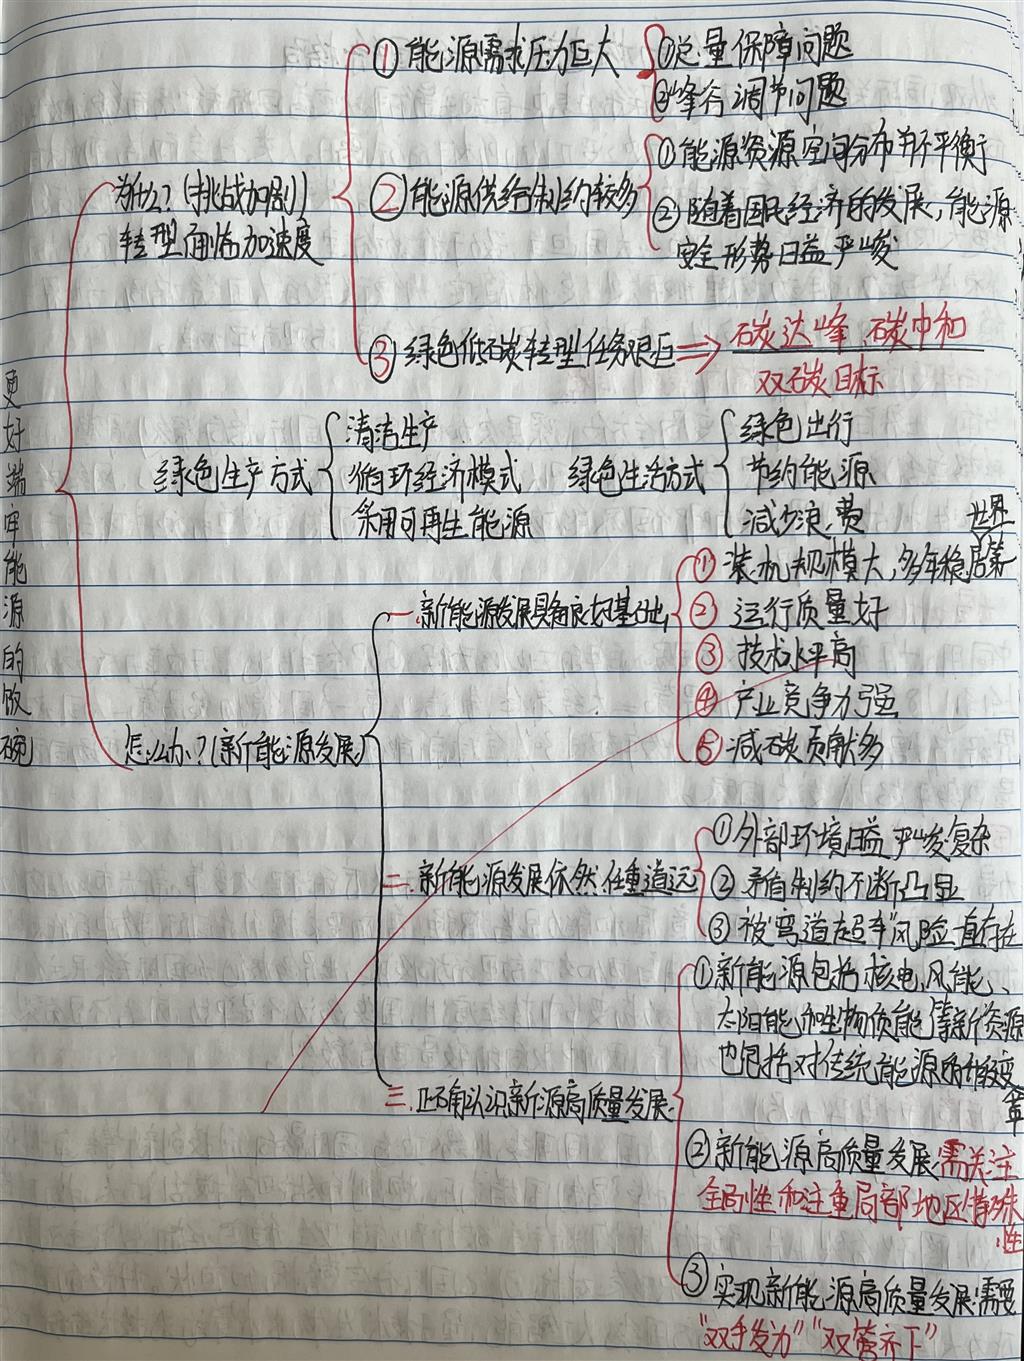 更好端牢能源的饭碗
为什么?(挑战加剧)
转型面临加速度
①能源需求压力巨大
①总量保障问题
②峰谷调节问题
②能源供给制约较多
①能源资源空间分布并不平衡
②随着国民经济的发展,能源
安全形势日益严峻
③绿色低碳转型任务艰巨⇒
碳达峰、碳中和
双碳目标
绿色生产方式
清洁生产
循环经济模式
采用可再生能源
绿色生活方式
绿色出行
节约能源
减少浪费
怎么办?(新能源发展)
一.新能源发展具备良好基础
世界
①装机规模大,多年稳居第一
②运行质量好
③技术水平高
④产业竞争力强
⑤减碳贡献多
二.新能源发展依然任重道远
①外部环境日益严峻复杂
②矛盾制约不断凸显
③被“弯道超车”风险一直存在
三.正确认识新源高质量发展
①新能源包括核电、风能、
太阳能和生物质能等新资源
也包括对传统能源的
变革
②新能源高质量发展需关注
全局性和注重局部地区特殊
性
③实现新能源高质量发展需要
“双手发力”“双管齐下”